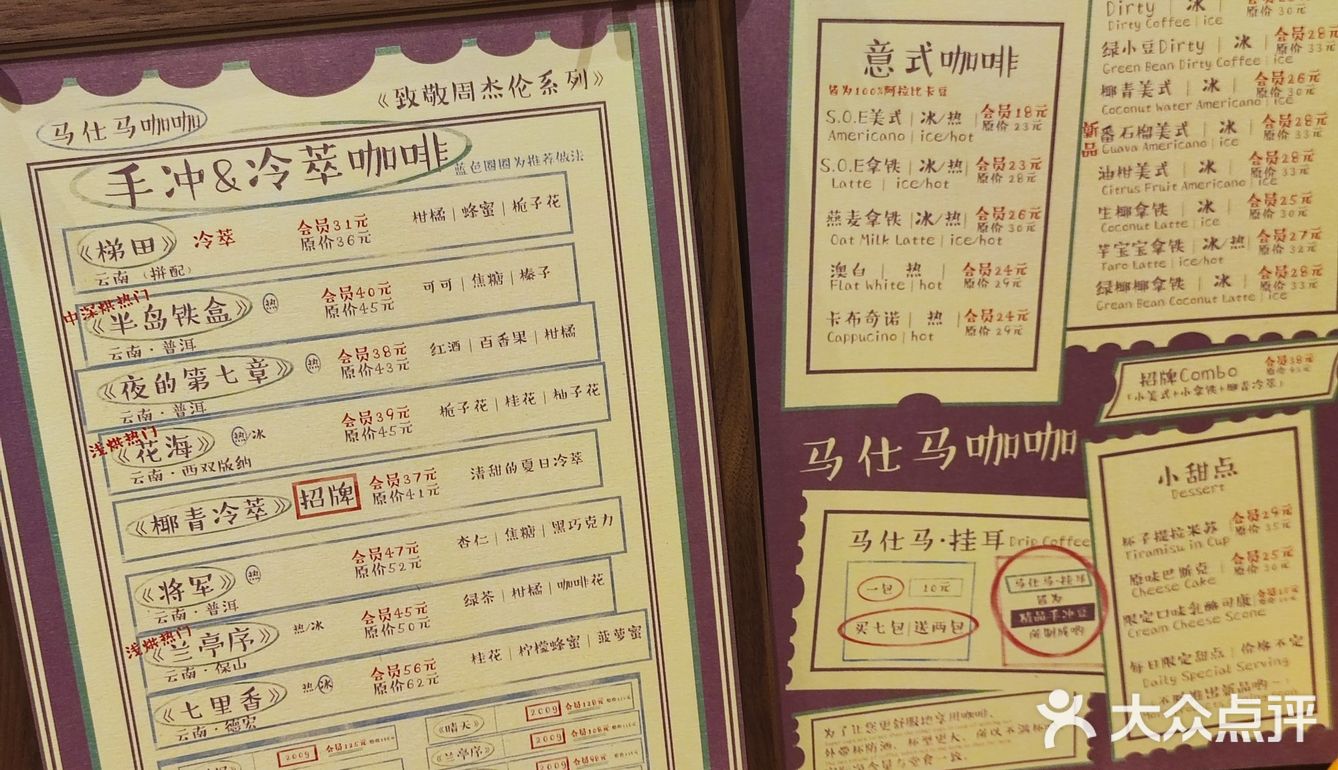 《致敬周杰伦系列》
马仕马咖咖
手冲&冷萃咖啡
蓝色圈圈为推荐做法
《梯田》 冷萃 会员31元 柑橘 | 蜂蜜 | 栀子花
原价36元
云南（拼配）
中深烘热门
《半岛铁盒》 热 会员40元 可可 | 焦糖 | 榛子
原价45元
云南·普洱
《夜的第七章》 热 会员38元 红酒 | 百香果 | 柑橘
原价43元
云南·普洱
浅烘热门
《花海》 热/冰 会员39元 栀子花 | 桂花 | 柚子花
原价45元
云南·西双版纳
《椰青冷萃》 招牌 会员37元 清甜的夏日冷萃
原价41元
《将军》 热 会员47元 杏仁 | 焦糖 | 黑巧克力
原价52元
云南·普洱
浅烘热门
《兰亭序》 热/冰 会员45元 绿茶 | 柑橘 | 咖啡花
原价50元
云南·保山
《七里香》 热/冰 会员56元 桂花 | 柠檬蜂蜜 | 菠萝蜜
原价62元
云南·德宏
《晴天》 200g
《兰亭序》 200g
200g
200g
意式咖啡
皆为100%阿拉比卡豆
S.O.E美式 | 冰/热 会员18元
Americano | ice/hot 原价23元
S.O.E拿铁 | 冰/热 会员23元
Latte | ice/hot 原价28元
燕麦拿铁 | 冰/热 会员26元
Oat Milk Latte | ice/hot 原价30元
澳白 | 热 会员24元
Flat white | hot 原价29元
卡布奇诺 | 热 会员24元
Cappucino | hot 原价29元
Dirty | 冰
Dirty Coffee | ice 原价30元
绿小豆Dirty | 冰 会员28元
Green Bean Dirty Coffee | ice 原价33元
椰青美式 | 冰 会员26元
Coconut Water Americano | ice 原价30元
新品
番石榴美式 | 冰 会员28元
Guava Americano | ice 原价33元
油柑美式 | 冰 会员28元
Citrus Fruit Americano | ice 原价33元
生椰拿铁 | 冰 会员25元
Coconut Latte | ice 原价30元
芋宝宝拿铁 | 冰/热 会员27元
Taro Latte | ice/hot 原价32元
绿椰椰拿铁 | 冰 会员28元
Grean Bean Coconut Latte | ice 原价33元
招牌Combo 会员38元
「小美式+小拿铁+椰青冷萃」
马仕马咖咖
马仕马·挂耳 Drip Coffee
一包 10元
买七包 | 送两包
马仕马·挂耳
皆为
精品手冲豆
研制成哟
小甜点
Dessert
杯子提拉米苏 会员29元
Tiramisu in Cup 原价35元
原味巴斯克 会员25元
Cheese Cake 原价30元
限定口味乳酪司康
Cream Cheese Scone
每日限定甜点 | 价格不定
Daily Special Serving
为了让您更舒服地享用咖啡,
大众点评